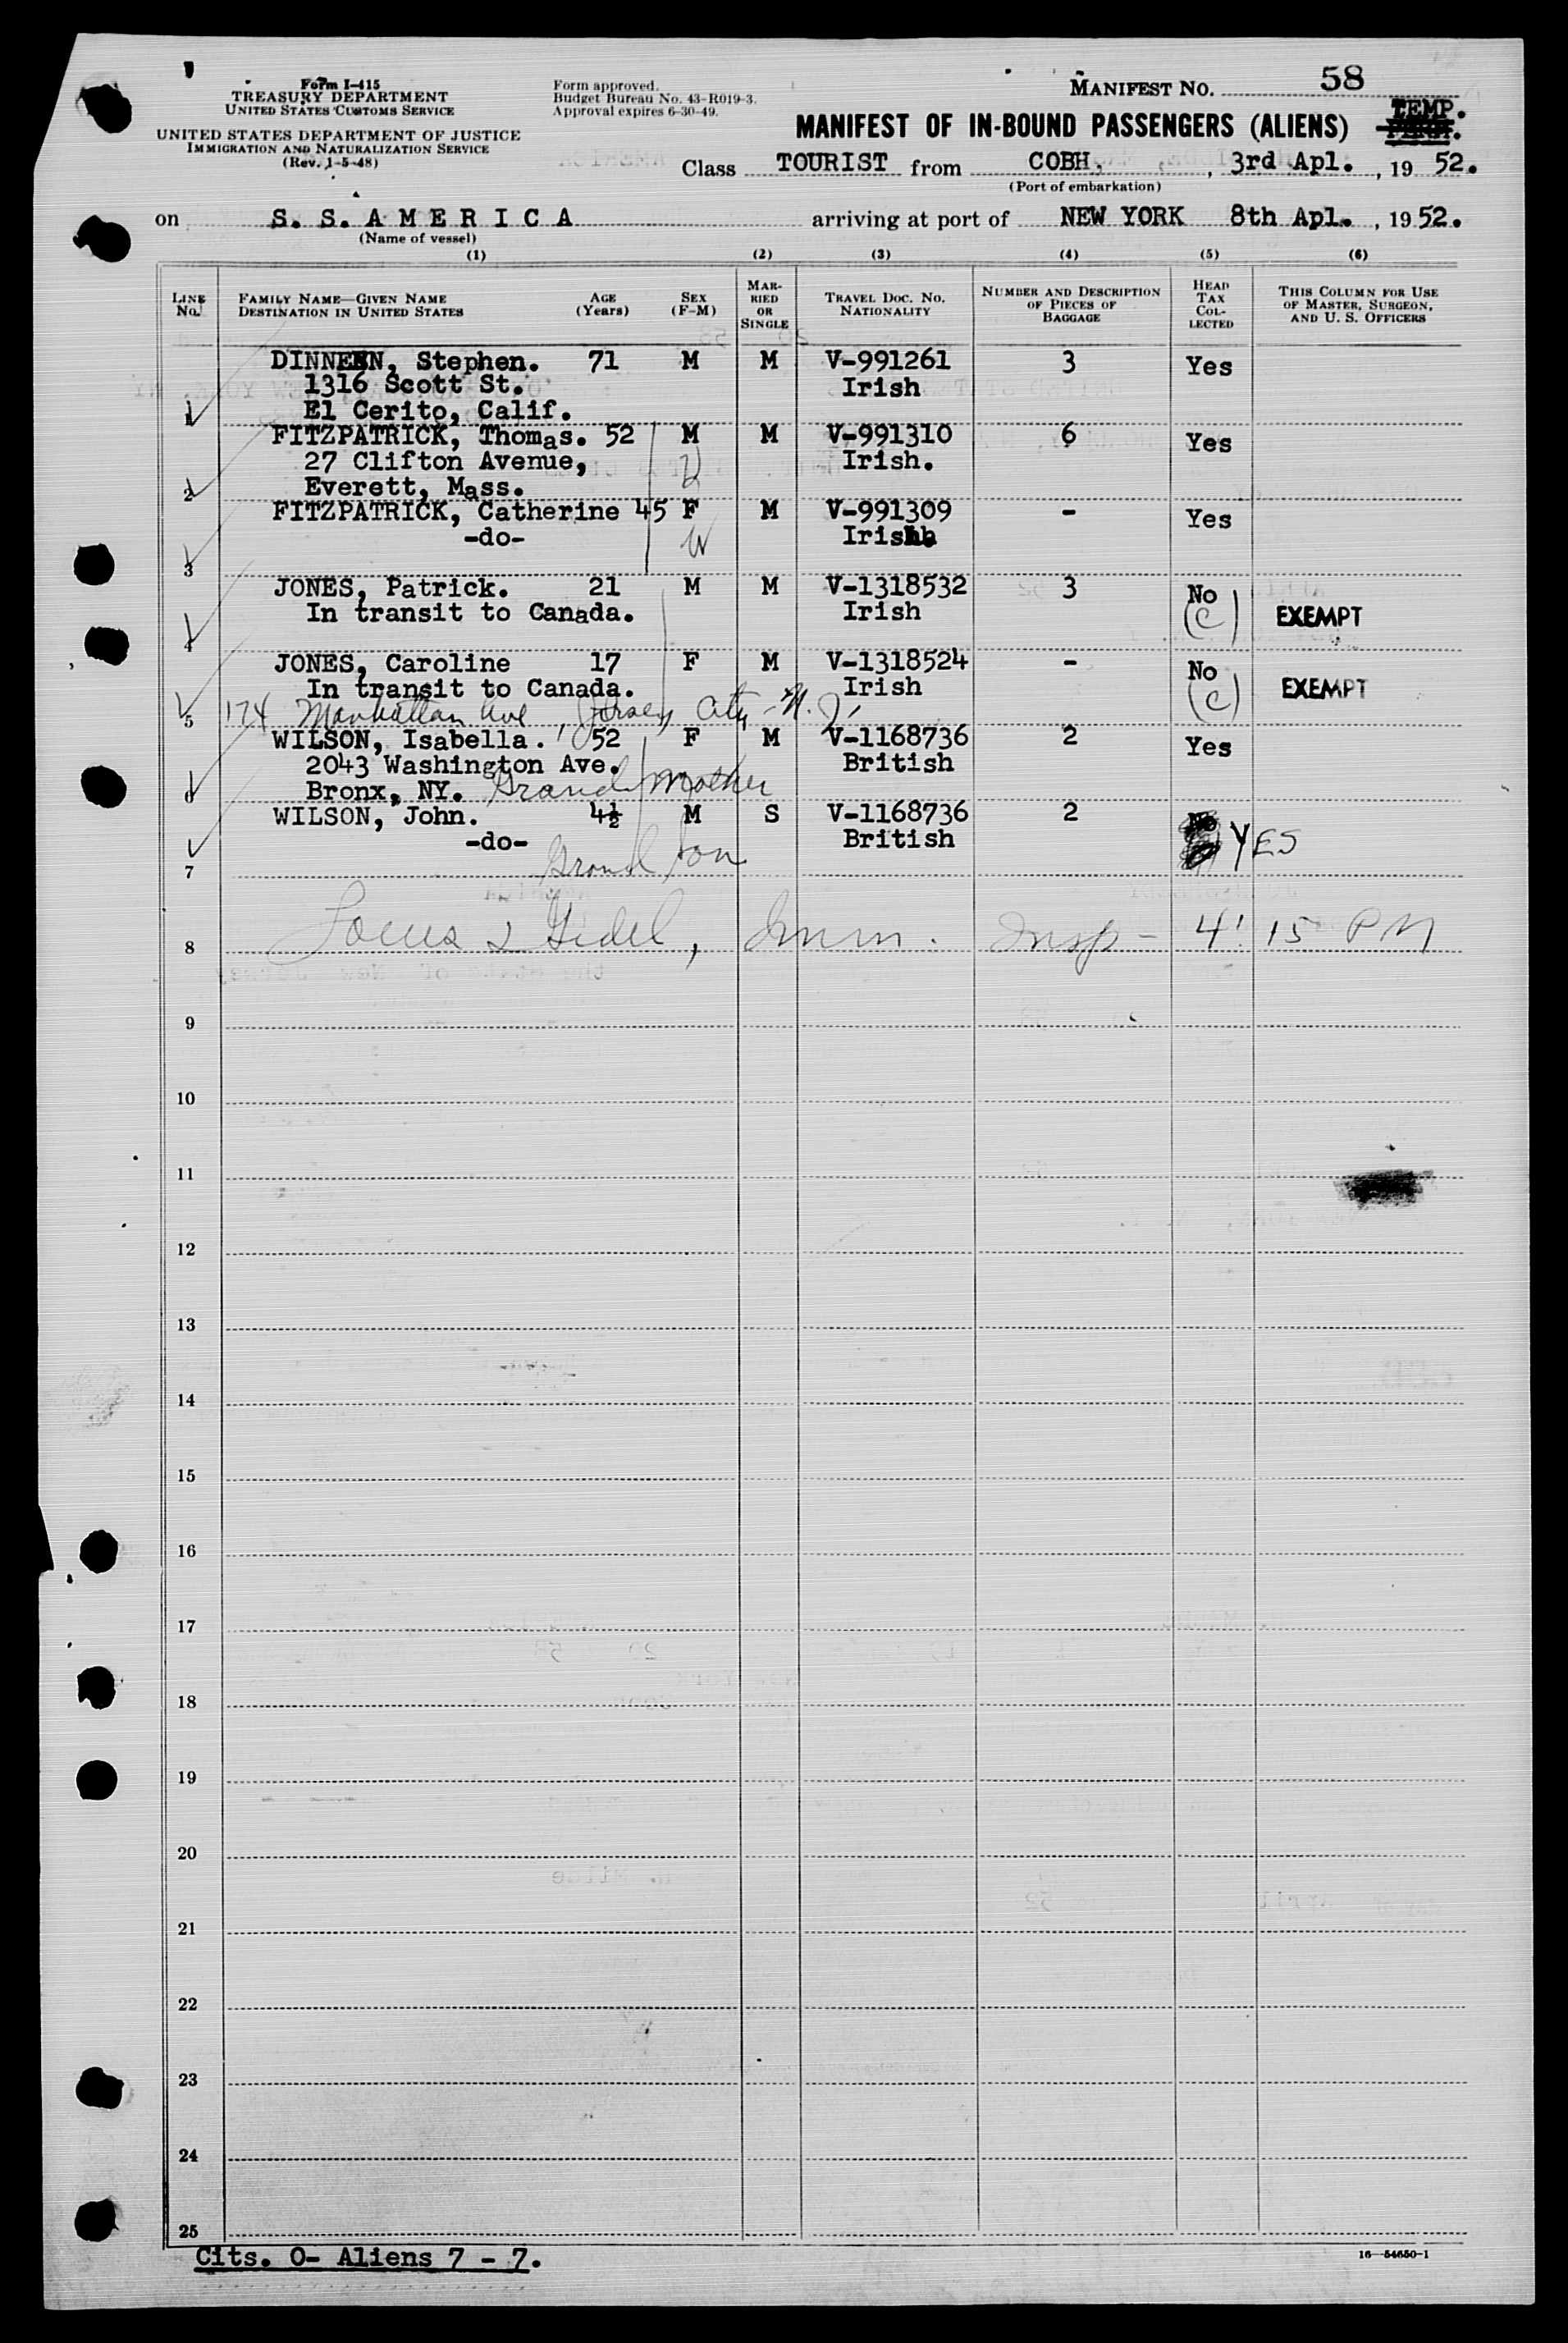 Form I-415
TREASURY DEPARTMENT
UNITED STATES CUSTOMS SERVICE
UNITED STATES DEPARTMENT OF JUSTICE
IMMIGRATION AND NATURALIZATION SERVICE
(Rev. 1-5-48)
Form approved.
Budget Bureau No. 43-R019-3.
Approval expires 6-30-49.
MANIFEST NO. 58
MANIFEST OF IN-BOUND PASSENGERS (ALIENS) TEMP.
Class TOURIST from COBH, , 3rd Apl. , 19 52.
(Port of embarkation)
on S. S. A M E R I C A arriving at port of NEW YORK 8th Apl. , 19 52.
(Name of vessel)
(1) (2) (3) (4) (5) (6)
LINE No. FAMILY NAME—GIVEN NAME DESTINATION IN UNITED STATES AGE (Years) SEX (F-M) MARRIED OR SINGLE TRAVEL DOC. NO. NATIONALITY NUMBER AND DESCRIPTION OF PIECES OF BAGGAGE HEAD TAX COLLECTED THIS COLUMN FOR USE OF MASTER, SURGEON, AND U. S. OFFICERS
DINNEEN, Stephen. 71 M M V-991261 3 Yes
1316 Scott St. Irish
1 El Cerito, Calif.
FITZPATRICK, Thomas. 52 M M V-991310 6 Yes
27 Clifton Avenue, Irish.
2 Everett, Mass.
FITZPATRICK, Catherine 45 F M V-991309 - Yes
-do- W Irish
3
JONES, Patrick. 21 M M V-1318532 3 No
In transit to Canada. Irish (C) EXEMPT
4
JONES, Caroline 17 F M V-1318524 - No
In transit to Canada. Irish (C) EXEMPT
5 174 Manhattan Ave, Jersey City - N.J.
WILSON, Isabella. 52 F M V-1168736 2 Yes
2043 Washington Ave. British
6 Bronx, NY. Grand Mother
WILSON, John. 4½ M S V-1168736 2 No YES
-do- British
7 Grand son
8 & Imm. Insp - 4:15 PM
9
10
11
12
13
14
15
16
17
18
19
20
21
22
23
24
25
Cits. 0- Aliens 7 - 7.
16—54650-1